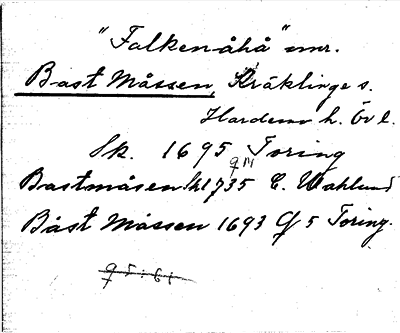 "Falkenåhå" mr.
Bast Måssen, Kräklinge s.
Hardemo h. Ör l.
Sk. 1695 Toring
Bastmåsen 1735 C. Wahlund
Båst Måssen 1693 G 5 Toring.